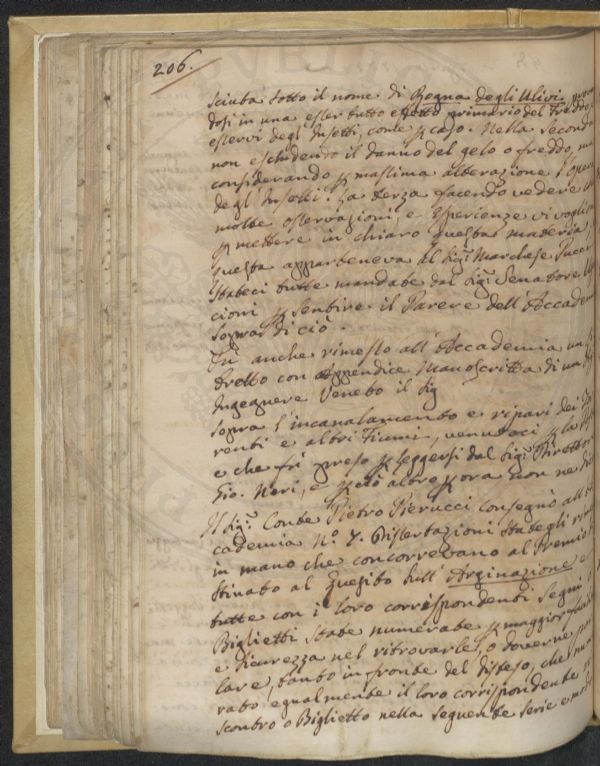 206.
sciuta sotto il nome di Rogna degli Ulivi
dosi in una esser tutto effetto primario del Freddo
esservi degl'Insetti, come p caso. Nella Seconda
non escludendo il danno del gelo o freddo, ma
considerando p massima alterazione l'opera
degl'Insetti. La terza facendo vedere che
molte osservazioni, e Esperienze vi vogliono
p mettere in chiaro questa materia
questa apparteneva al Sigr Marchese Pucci
Stateci tutte mandate dal Sigr Senatore
cioni p sentire il Parere dell'Accademia
sopra di ciò.
Fù anche rimesso all'Accademia un
con Appendice Manoscritta di un
Ingegnere Veneto il Sig
sopra l'incanalamento e ripari dei
renti e altri Fiumi, venutoci p la
e che fù preso p leggersi dal Sigr Direttore
Gio. Neri, e p ciò altro p ora non ne
Il Sigr Conte Pietro Pierucci consegnò all'
cademia No 7. Dissertazioni stategli
in mano che concorrevano al Premio
stinato al Quesito sull'Arginazione e
tutte con i loro corrispondenti segni
Biglietti state numerate p maggior
e sicurezza nel ritrovarle, o doverne
lare, tanto in fronte del disteso, che
rato egualmente il loro corrispondente
scontro o Biglietto nella seguente serie e